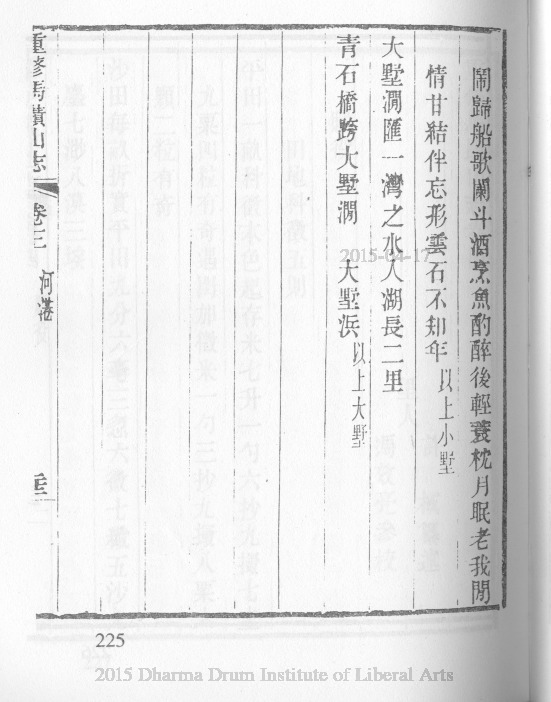 鬧歸船歌闌斗酒烹魚酌醉後輕蓑枕月眠老我閒
情甘結伴忘形雲石不知年以上小墅
大墅澗匯一灣之水入湖長二里
青石橋跨大墅澗 大墅浜以上大墅
重修馬蹟山志 卷三 河港
225
2015-04-17
2015 Dharma Drum Institute of Liberal Arts